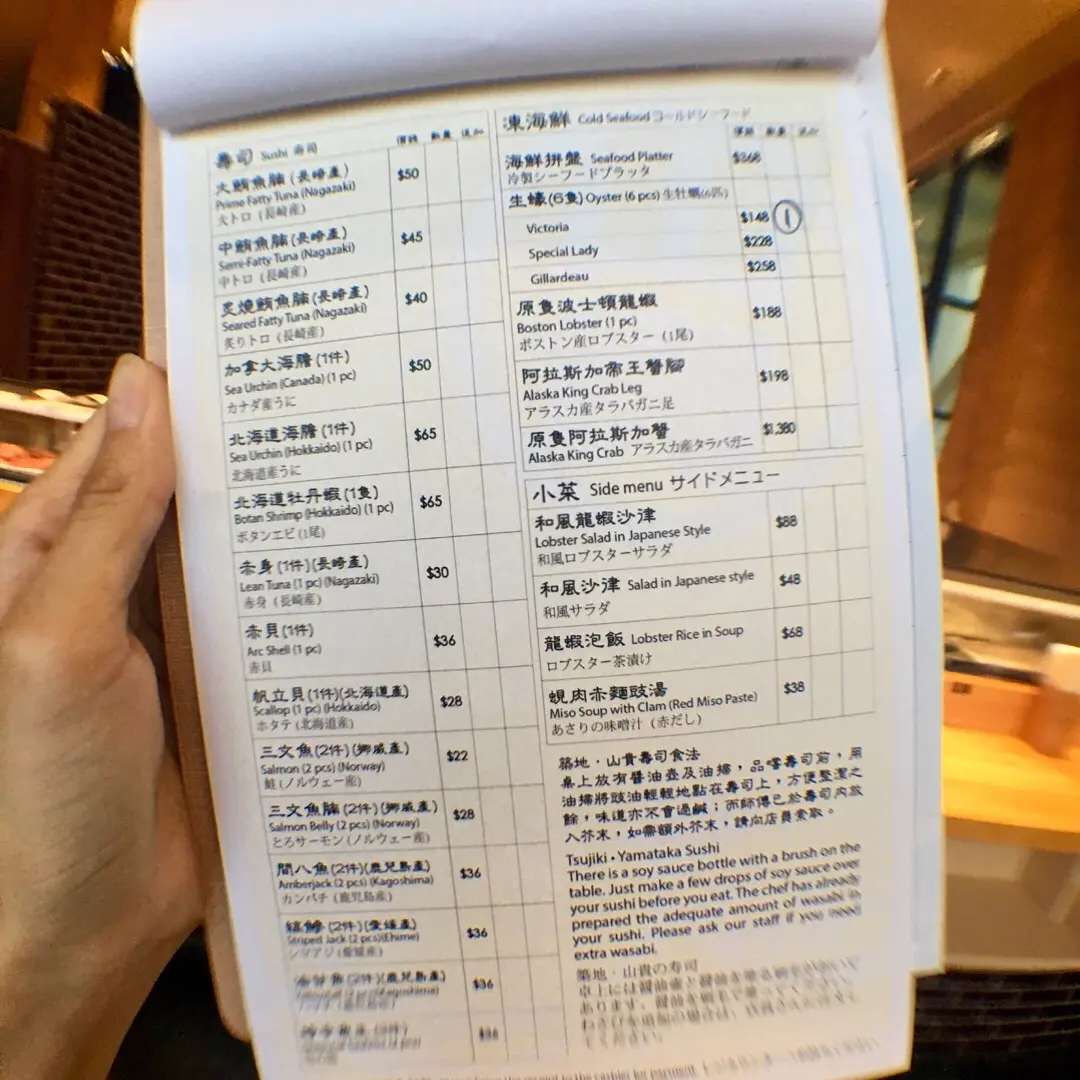 壽司 Sushi 寿司
價錢 數量 追加
大鮪魚腩 (長崎產)
Prime Fatty Tuna (Nagazaki)
大トロ (長崎産)
$50
中鮪魚腩 (長崎產)
Semi-Fatty Tuna (Nagazaki)
中トロ (長崎産)
$45
炙燒鮪魚腩 (長崎產)
Seared Fatty Tuna (Nagazaki)
炙りトロ (長崎産)
$40
加拿大海膽 (1件)
Sea Urchin (Canada) (1 pc)
カナダ産うに
$50
北海道海膽 (1件)
Sea Urchin (Hokkaido) (1 pc)
北海道産うに
$65
北海道牡丹蝦 (1隻)
Botan Shrimp (Hokkaido) (1 pc)
ボタンエビ (1尾)
$65
赤身 (1件) (長崎產)
Lean Tuna (1 pc) (Nagazaki)
赤身 (長崎産)
$30
赤貝 (1件)
Arc Shell (1 pc)
赤貝
$36
帆立貝 (1件)(北海道產)
Scallop (1 pc) (Hokkaido)
ホタテ (北海道産)
$28
三文魚 (2件) (挪威產)
Salmon (2 pcs) (Norway)
鮭 (ノルウェー産)
$22
三文魚腩 (2件) (挪威產)
Salmon Belly (2 pcs) (Norway)
とろサーモン (ノルウェー産)
$28
間八魚 (2件)(鹿兒島產)
Amberjack (2 pcs) (Kagoshima)
カンパチ (鹿児島産)
$36
縞鰺 (2件) (愛媛產)
Striped Jack (2 pcs)(Ehime)
シマアジ (愛媛産)
$36
(2件)(鹿兒島產)
(2 pcs)(Kagoshima)
$36
$36
凍海鮮 Cold Seafood コールドシーフード
價錢 數量 追加
海鮮拼盤 Seafood Platter
冷製シーフードプラッタ
$368
生蠔 (6隻) Oyster (6 pcs) 生牡蠣(6匹)
Victoria $148 1
Special Lady $228
Gillardeau $258
原隻波士頓龍蝦
Boston Lobster (1 pc)
ボストン産ロブスター (1尾)
$188
阿拉斯加帝王蟹腳
Alaska King Crab Leg
アラスカ産タラバガニ足
$198
原隻阿拉斯加蟹
Alaska King Crab アラスカ産タラバガニ
$1,380
小菜 Side menu サイドメニュー
和風龍蝦沙律
Lobster Salad in Japanese Style
和風ロブスターサラダ
$88
和風沙律 Salad in Japanese style
和風サラダ
$48
龍蝦泡飯 Lobster Rice in Soup
ロブスター茶漬け
$68
蜆肉赤麵豉湯
Miso Soup with Clam (Red Miso Paste)
あさりの味噌汁 (赤だし)
$38
築地・山貴壽司食法
桌上放有醬油壺及油掃，品嚐壽司前，用
油掃將豉油輕輕地點在壽司上，方便整潔之
餘，味道亦不會過鹹；而師傅已於壽司內放
入芥末，如需額外芥末，請向店員索取。
Tsujiki・Yamataka Sushi
There is a soy sauce bottle with a brush on the
table. Just make a few drops of soy sauce over
your sushi before you eat. The chef has already
prepared the adequate amount of wasabi in
your sushi. Please ask our staff if you need
extra wasabi.
築地・山貴の寿司